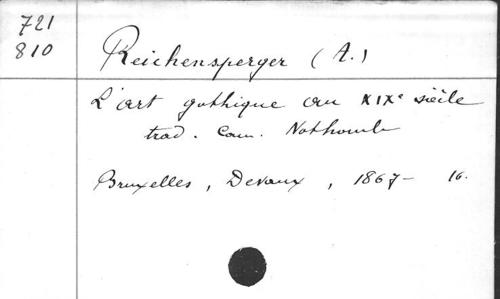 721
810
Reichensperger (A.)
L'art gothique au XIXe siècle
trad. Cam. Nothomb
Bruxelles, Devaux, 1867 - 16.